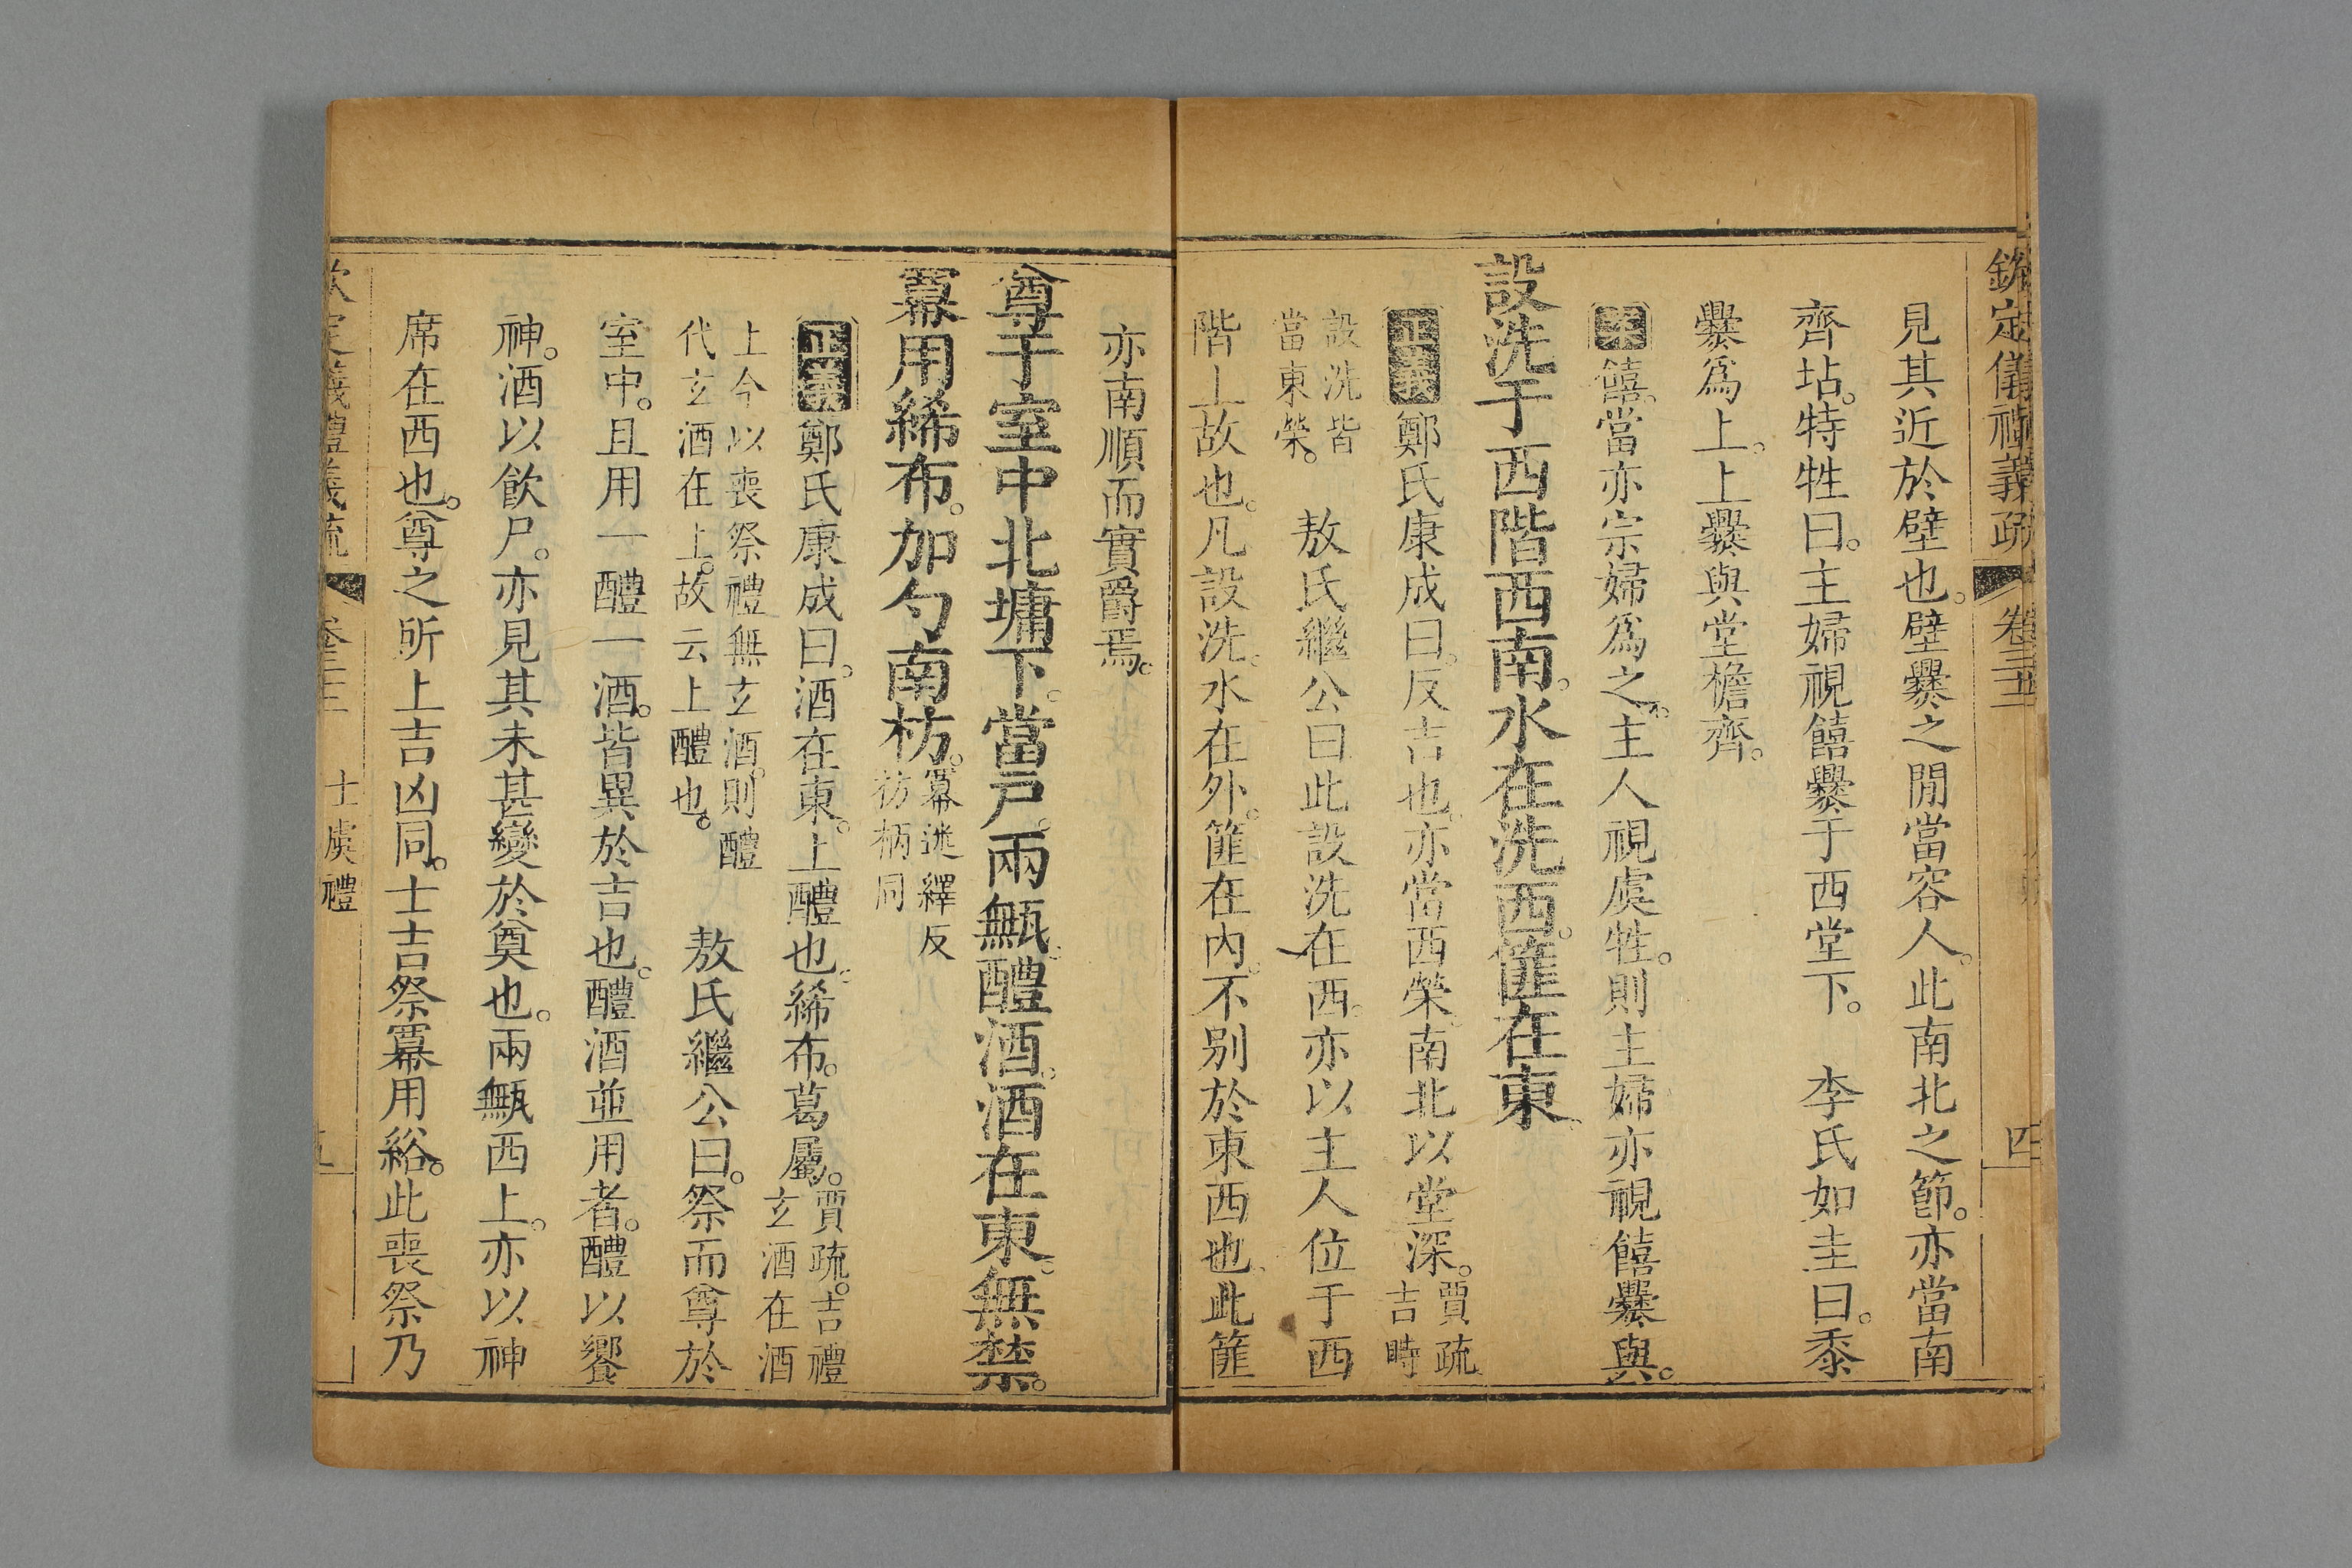 欽定儀禮義疏 卷三十三 四
見其近於壁也。壁爨之閒當容人。此南北之節。亦當南
齊坫。特牲曰。主婦視饎爨于西堂下。 李氏如圭曰。黍
爨爲上。上爨與堂檐齊。
案饎。當亦宗婦爲之。主人視虞牲。則主婦亦視饎爨與。
設洗于西階西南。水在洗西。篚在東。
正義鄭氏康成曰。反吉也。亦當西榮。南北以堂深。賈疏吉時
設洗皆當東榮。 敖氏繼公曰此設洗在西。亦以主人位于西
階上故也。凡設洗。水在外。篚在內。不別於東西也。此篚
亦南順而實爵焉。
尊于室中北墉下。當戶。兩甒醴酒。酒在東。無禁。
冪用綌布。加勺南枋。冪迷繹反枋柄同
正義鄭氏康成曰。酒在東。上醴也。綌布。葛屬。賈疏。吉禮玄酒在酒
上今以喪祭禮無玄酒。則醴代玄酒在上。故云上醴也。 敖氏繼公曰。祭而尊於
室中。且用一醴一酒。皆異於吉也。醴酒並用者。醴以饗
神。酒以飲尸。亦見其未甚變於奠也。兩甒西上。亦以神
席在西也。尊之所上吉凶同。士吉祭冪用綌。此喪祭乃
欽定儀禮義疏 士虞禮